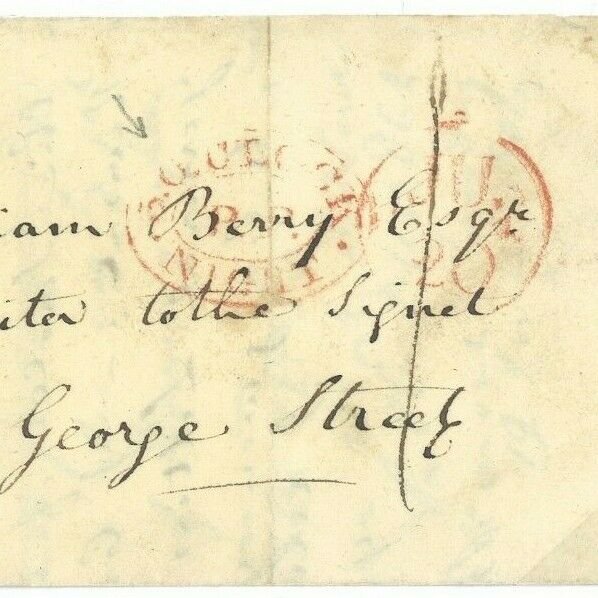 iam Berry Esqr
iter to the Signet
George Street
O'CLOCK
NIGHT
JU
20
1